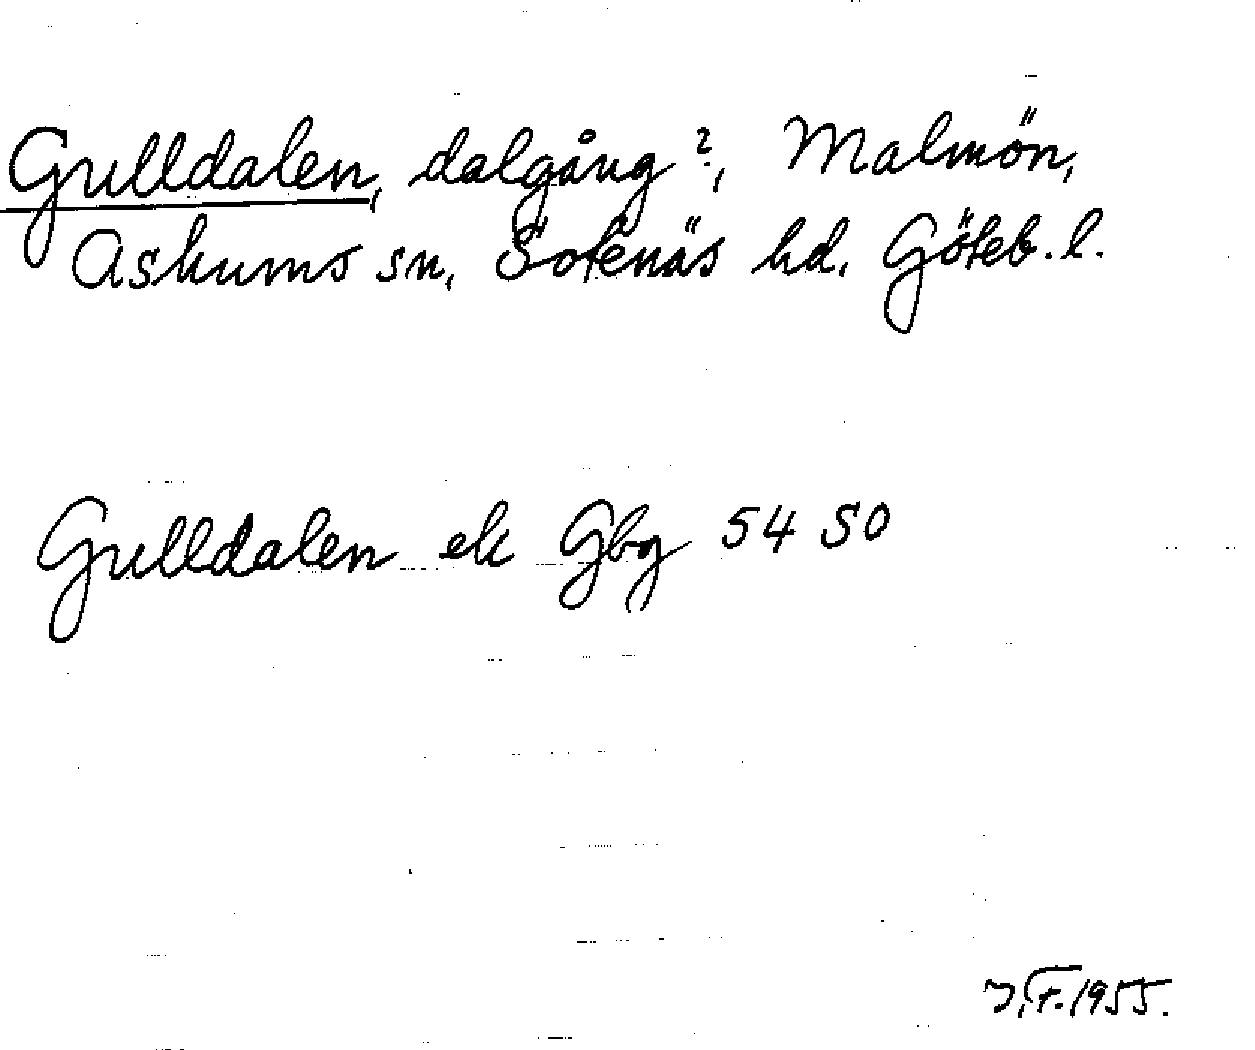 Gulldalen, dalgång?, Malmön,
Askums sn, Sotenäs hd, Göteb. l.
Gulldalen ek Gbg 54 SO
J.F. 1955.